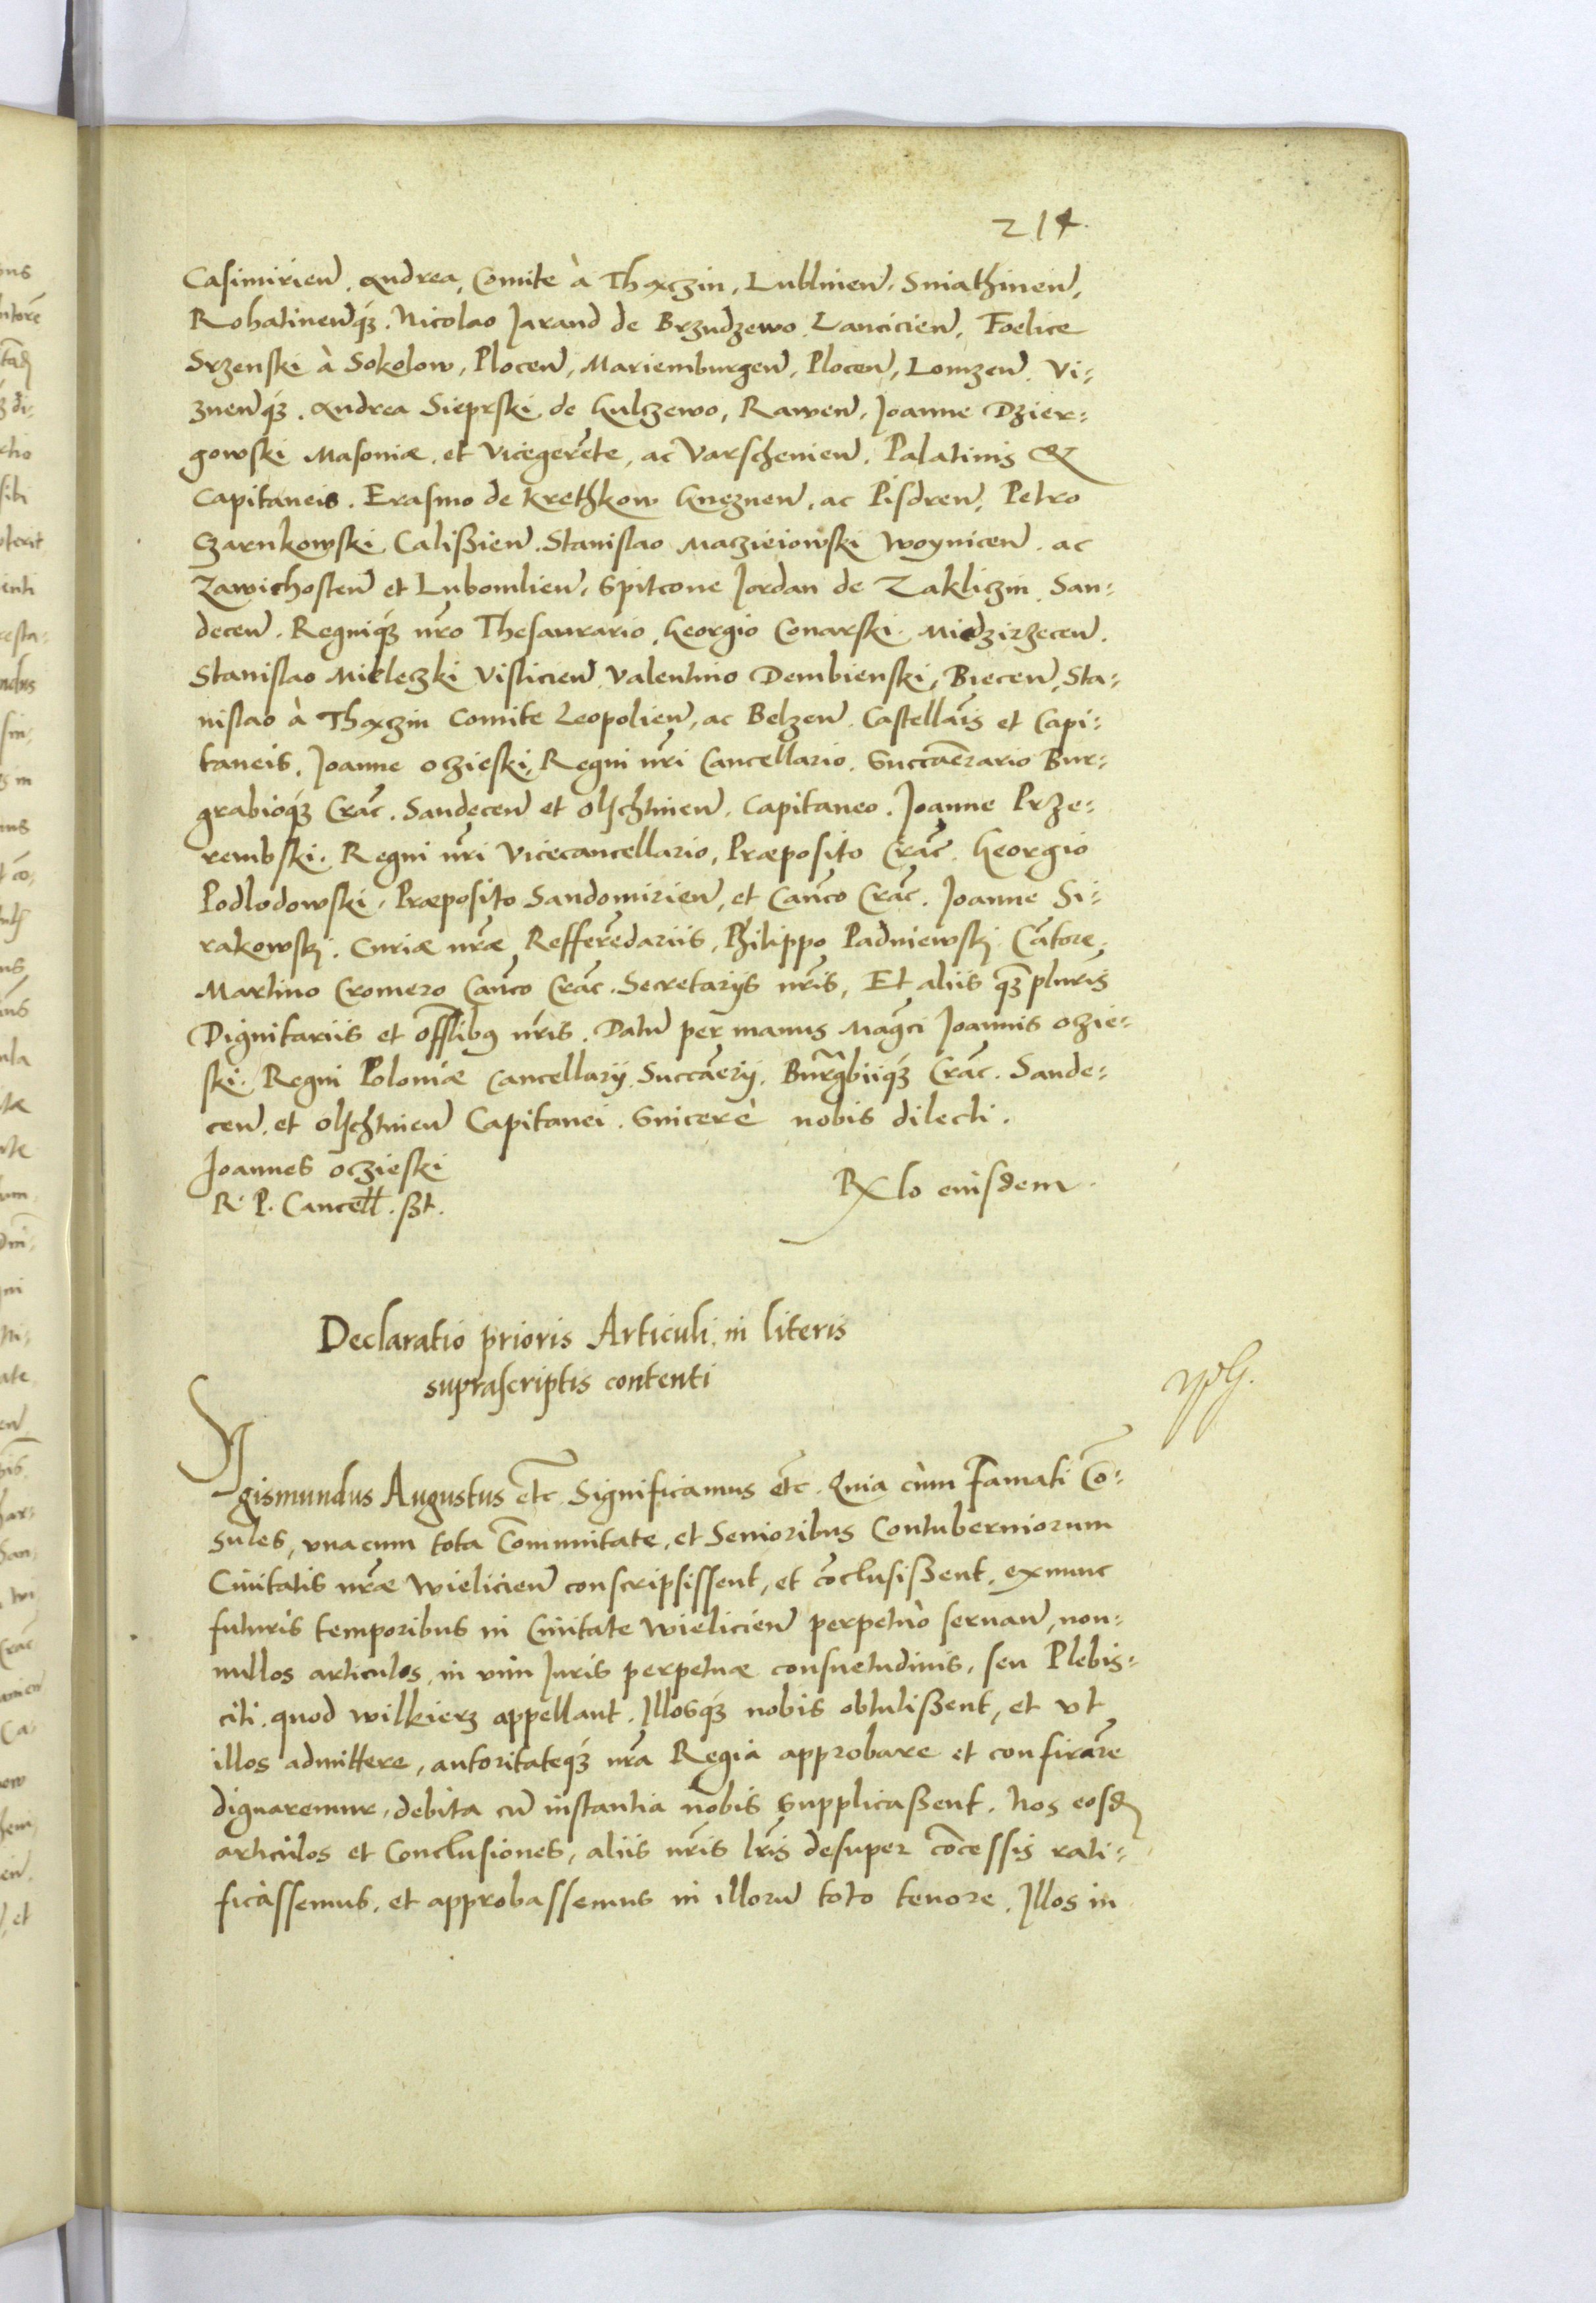 214.
Casimirien̄. Andrea, Comite à Thaczin, Lublinen̄. Sniathinen̄,
Rohatinen̄q́ꝫ. Nicolao Jarand de Brzudzewo Lancicien̄, Foelice
Srzenski à Sokolow, Plocen̄, Mariemburgen̄, Plocen̄, Lomzen̄. Vi:
znen̄q́ꝫ. Andrea Sieprski de Gulczewo, Rawen̄, Joanne Dzier:
gowski Masoniæ, et Vicegerēte, ac Varschenien̄. Palatinis &
Capitaneis. Erasmo de Krethkow Gneznen̄, ac Pisdren̄, Petro
Czarnkowski Calißien̄. Stanislao Maczieiowski Woynicen̄. ac
Zawichosten̄ et Lubomlien̄, Spitcone Jordan de Zakliczin San:
decen̄. Regniq́ꝫ nr̄o Thesaurario, Georgio Conarski. Miedzirzecen̄.
Stanislao Mieleczki Vislicien̄ Valentino Dembienski, Biecen̄, Sta:
nislao à Thaczin Comite Leopolien̄, ac Belzen̄. Castellāis et Capi:
taneis, Joanne Oczieski, Regni nr̄i Cancellario. Succāerario Bur:
grabioq́ꝫ Crac̄. Sandecen̄ et Olschtinen̄. Capitaneo. Joanne Prze:
rembski. Regni nr̄i Vicecancellario, Præposito Crac̄. Georgio
Podlodowski, Præposito Sandomirien̄, et Canc̄o Crac̄. Joanne Si:
rakowskj. Curiæ nr̄æ Refferēdariis, Philippo Padniewskj Cātore,
Martino Cromero Canc̄o Crac̄. Secretarijs nr̄is, Et aliis q̄ꝫ pluris
Dignitariis et off̄libꝰ nr̄is. Datū per manus Maḡci Joannis Oczie:
ski. Regni Poloniæ Cancellarij Succāerij. Burḡbiiq́ꝫ Crac̄. Sande:
cen̄. et Olschtinen̄ Capitanei. Sincerè nobis dilecti.
Joannes Oczieski
R. P. Cancełł. ßt.
Rx̄lo eiusdem.
Declaratio prioris Articuli in literis
suprascriptis contenti
Sigismundus Augustus etc̄. Significamus etc̄. Quia cùm Famati Cō:
sules, vna cum tota Cōmunitate, et Senioribus Contuberniorum
Ciuitatis nr̄æ Wielicien̄ conscripsissent, et cōclusißent, ex nunc
futuris temporibus in Ciuitate Wielicien̄ perpetuò seruan̄, non:
nullos articulos, in vim Juris perpetuæ consuetudinis, seu Plebis:
citi. quod wilkierz appellant. Illosq́ꝫ nobis obtulißent, et vt
illos admittere, autoritateq́ꝫ nr̄a Regia approbare et confirār̄e
dignaremur, debita cū instantia nobis supplicaßent. Nos eosdꝫ
articulos et Conclusiones, aliis nr̄is lr̄is desuper cōcessis rati:
ficàssemus, et approbassemus in illorū toto tenore. Illos in